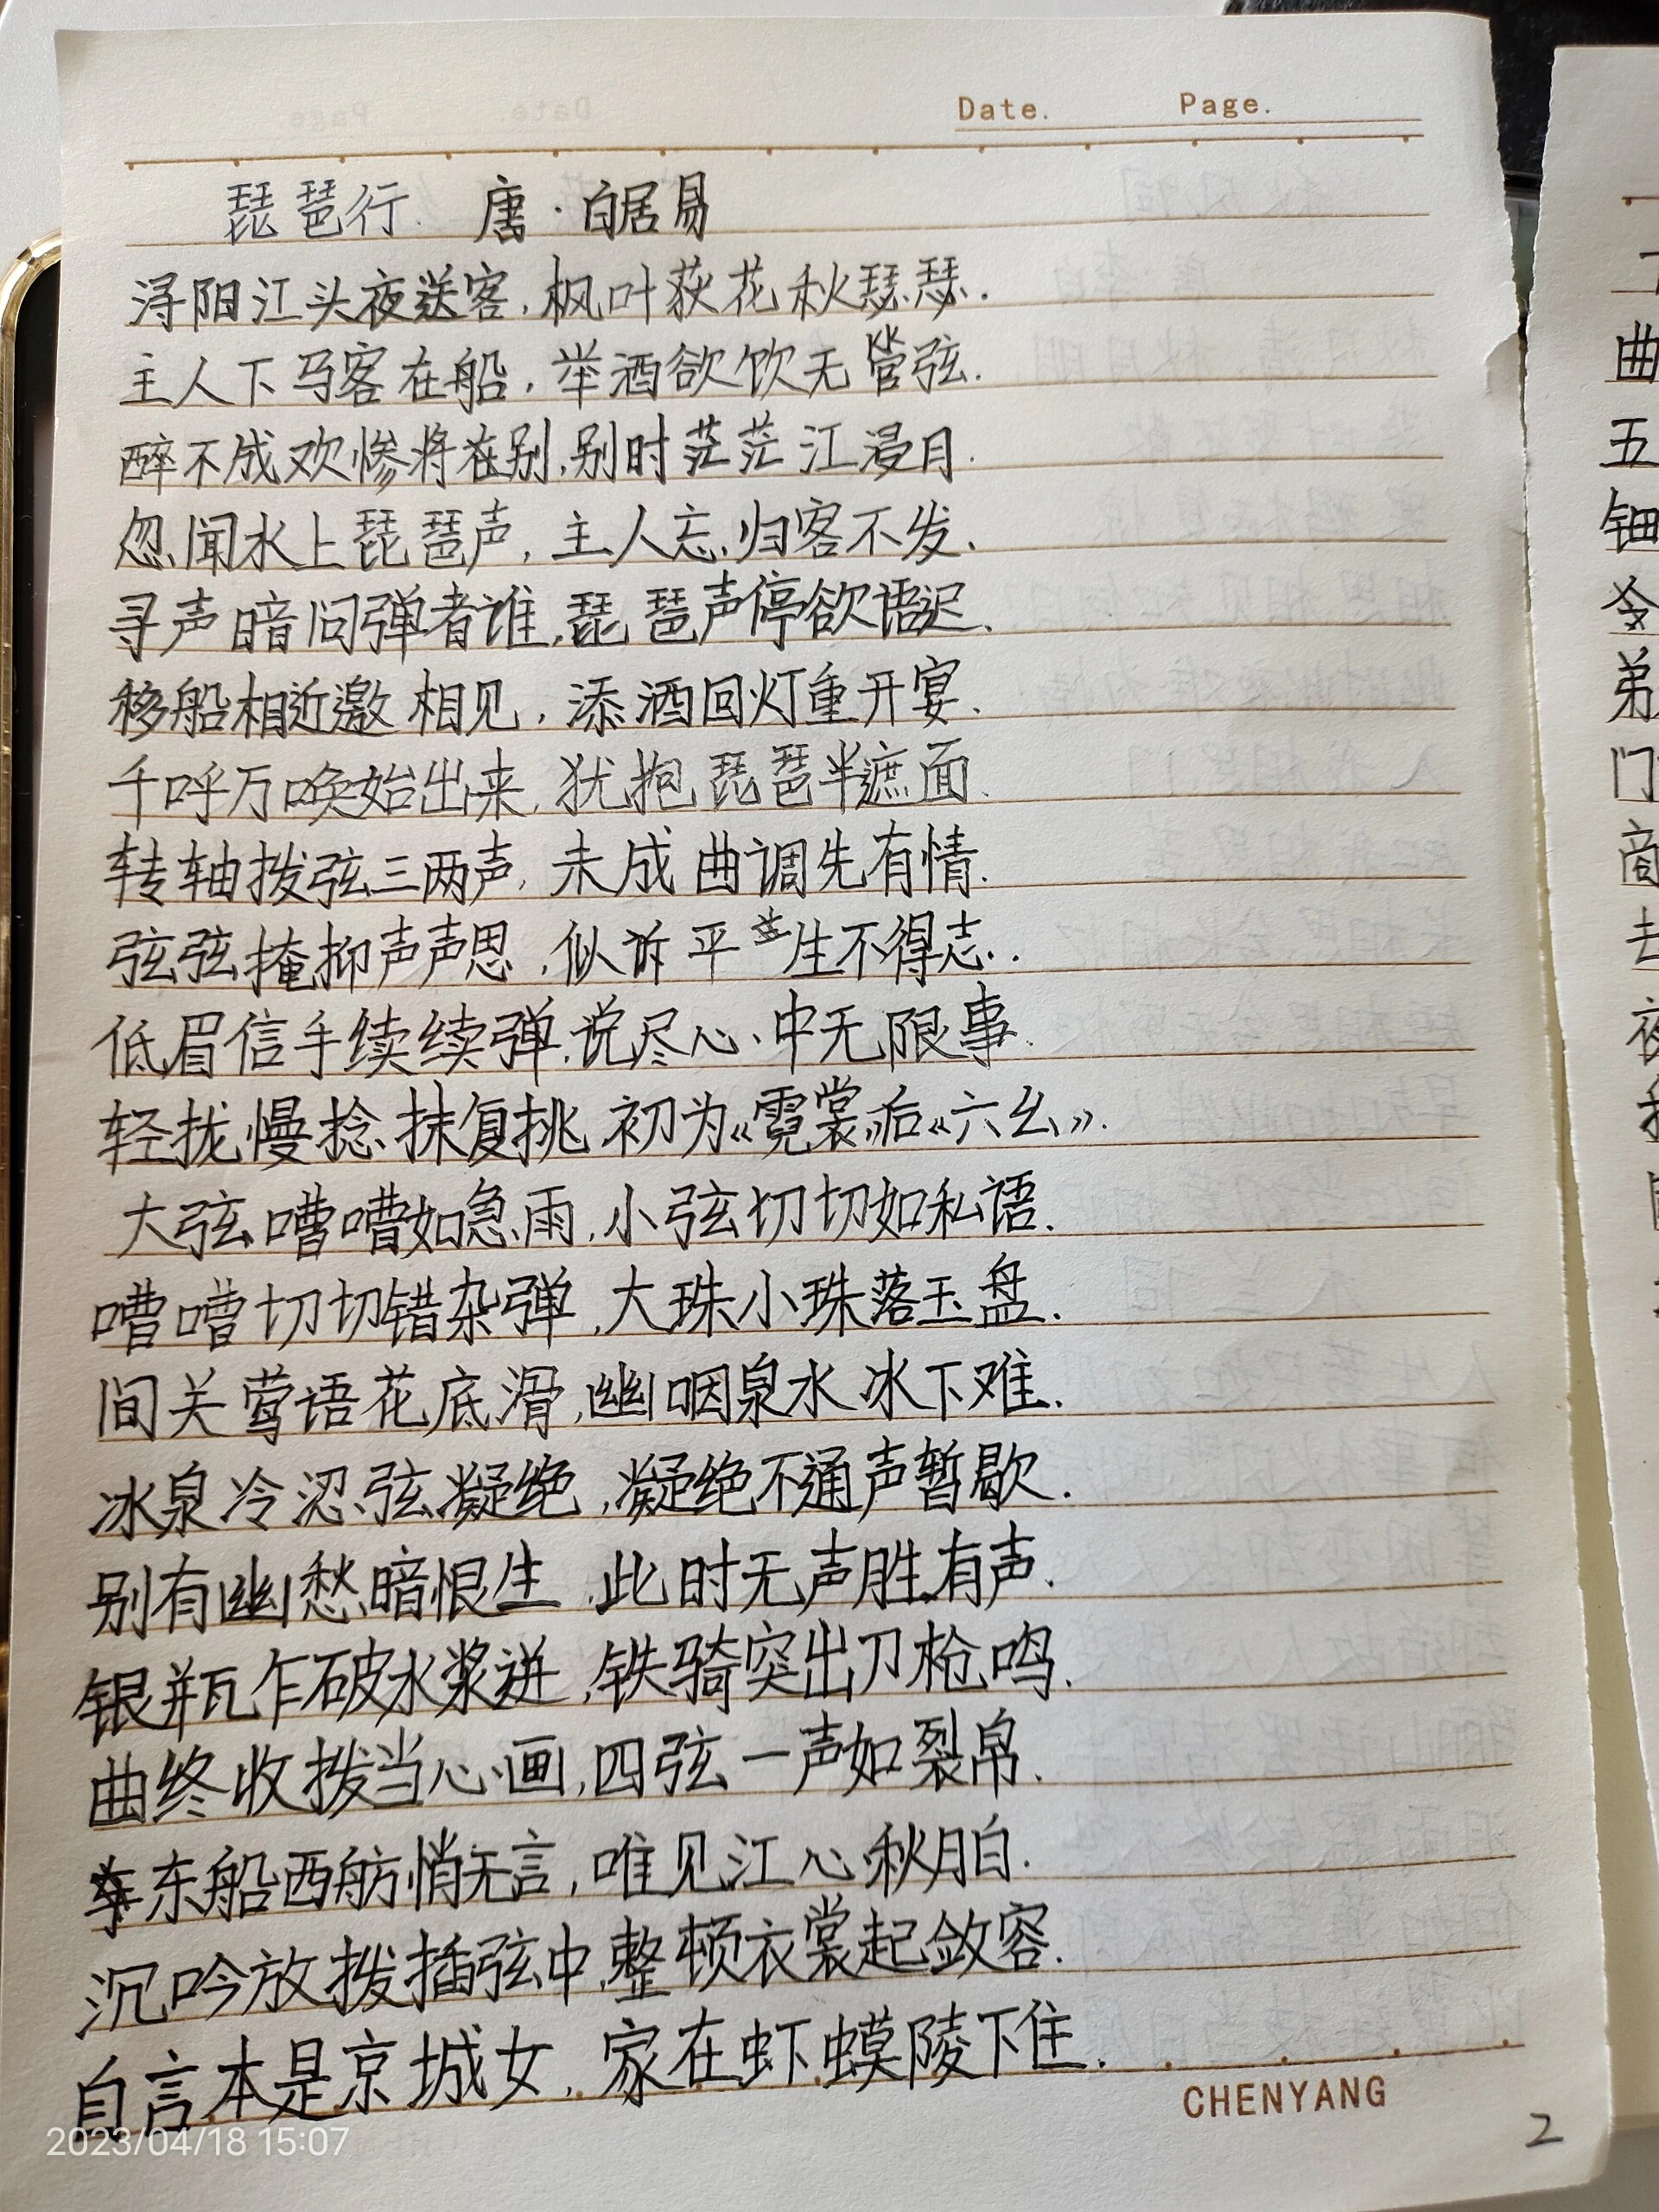 Date. Page.
琵琶行. 唐·白居易
浔阳江头夜送客,枫叶荻花秋瑟瑟.
主人下马客在船,举酒欲饮无管弦.
醉不成欢惨将在别,别时茫茫江浸月.
忽闻水上琵琶声,主人忘归客不发.
寻声暗问弹者谁,琵琶声停欲语迟.
移船相近邀相见,添酒回灯重开宴.
千呼万唤始出来,犹抱琵琶半遮面.
转轴拨弦三两声,未成曲调先有情.
弦弦掩抑声声思,似诉平生不得志.
低眉信手续续弹,说尽心中无限事.
轻拢慢捻抹复挑,初为《霓裳》后《六幺》.
大弦嘈嘈如急雨,小弦切切如私语.
嘈嘈切切错杂弹,大珠小珠落玉盘.
间关莺语花底滑,幽咽泉水冰下难.
冰泉冷涩弦凝绝,凝绝不通声暂歇.
别有幽愁暗恨生,此时无声胜有声.
银瓶乍破水浆迸,铁骑突出刀枪鸣.
曲终收拨当心画,四弦一声如裂帛.
东船西舫悄无言,唯见江心秋月白.
沉吟放拨插弦中,整顿衣裳起敛容.
自言本是京城女,家在虾蟆陵下住.
CHENYANG
2
2023/04/18 15:07
曲
五
钿
令
弟
门
商
去
夜